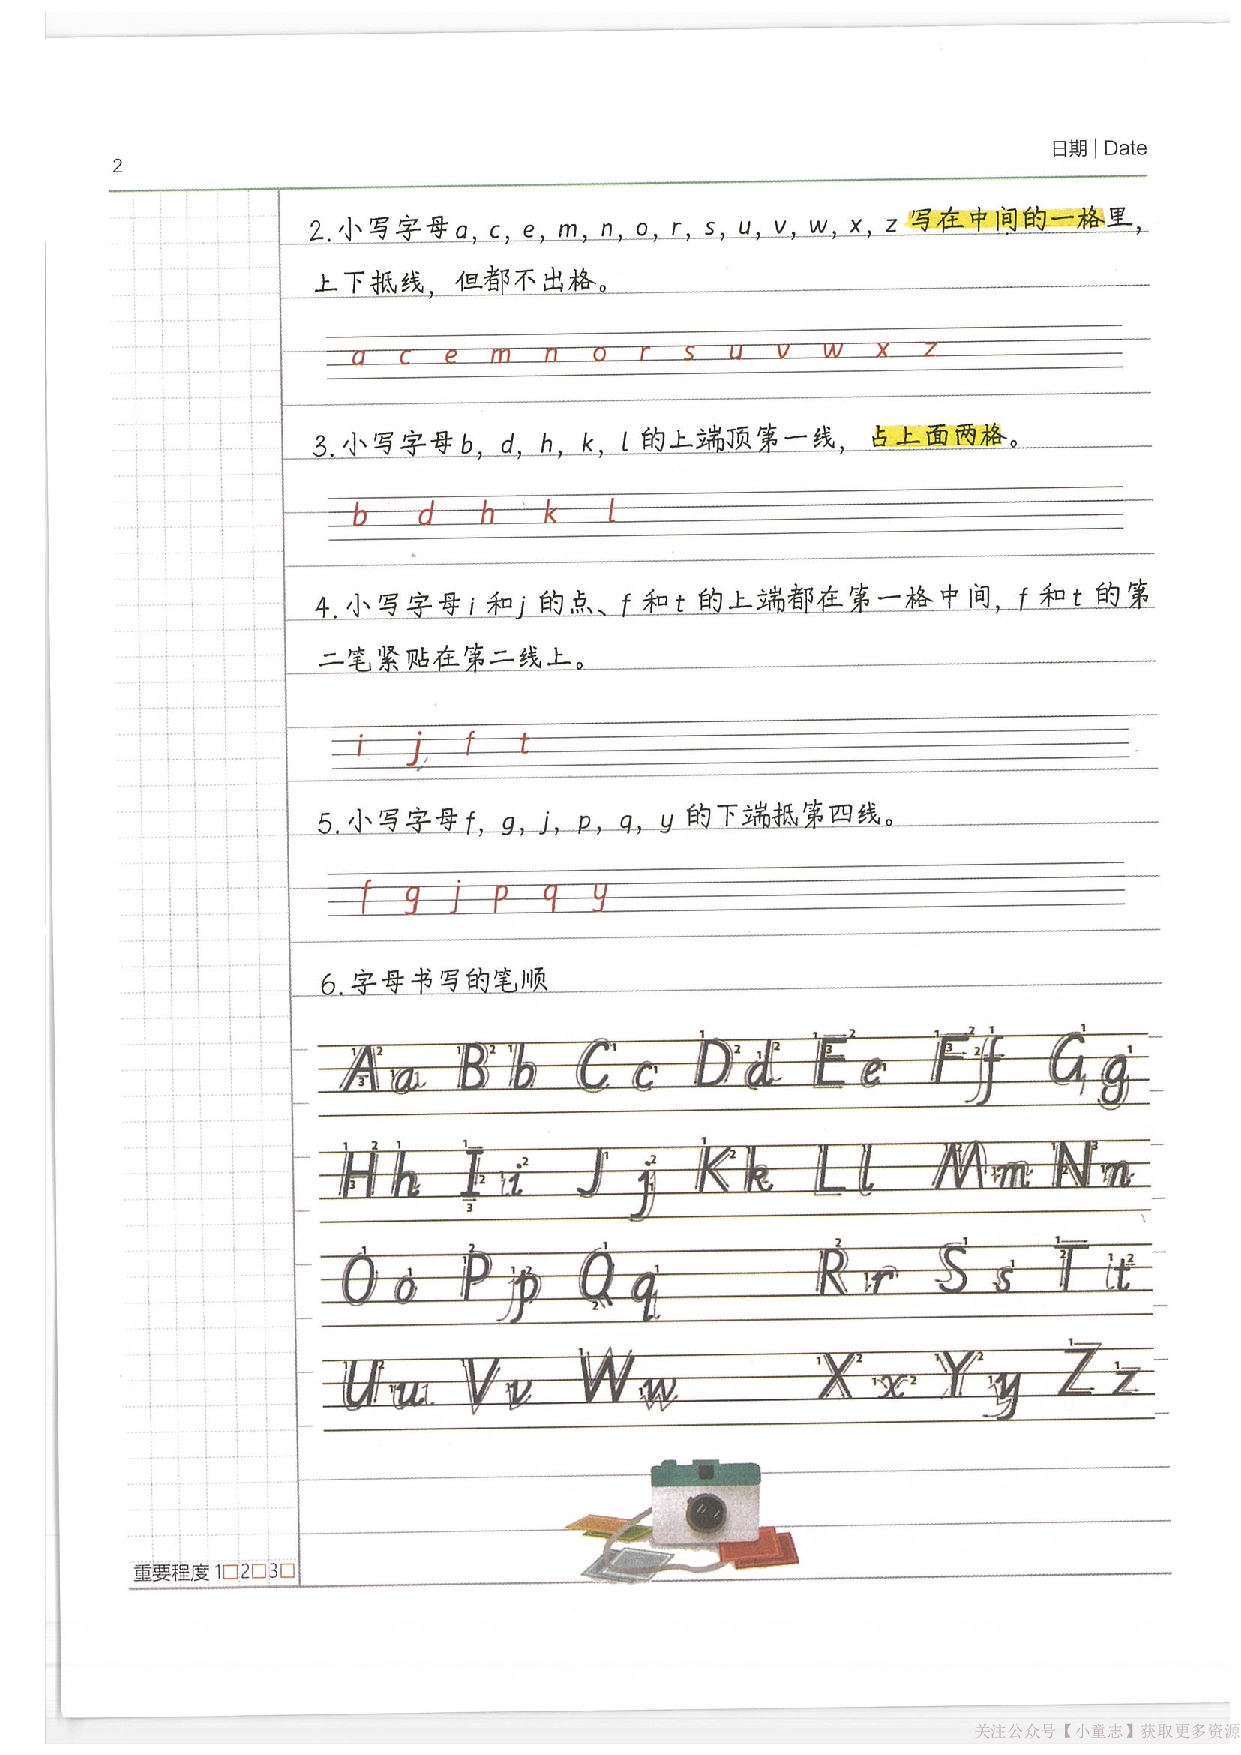 2
日期 | Date
2.小写字母a, c, e, m, n, o, r, s, u, v, w, x, z 写在中间的一格里,
上下抵线，但都不出格。
a c e m n o r s u v w x z
3.小写字母b, d, h, k, l 的上端顶第一线，占上面两格。
b d h k l
4.小写字母i和j的点、f和t的上端都在第一格中间, f和t的第
二笔紧贴在第二线上。
i j f t
5.小写字母f, g, j, p, q, y的下端抵第四线。
f g j p q y
6.字母书写的笔顺
Aa Bb Cc Dd Ee Ff Gg
Hh Ii Jj Kk Ll Mm Nn
Oo Pp Qq Rr Ss Tt
Uu Vv Ww Xx Yy Zz
重要程度 1□2□3□
关注公众号【小童志】获取更多资源